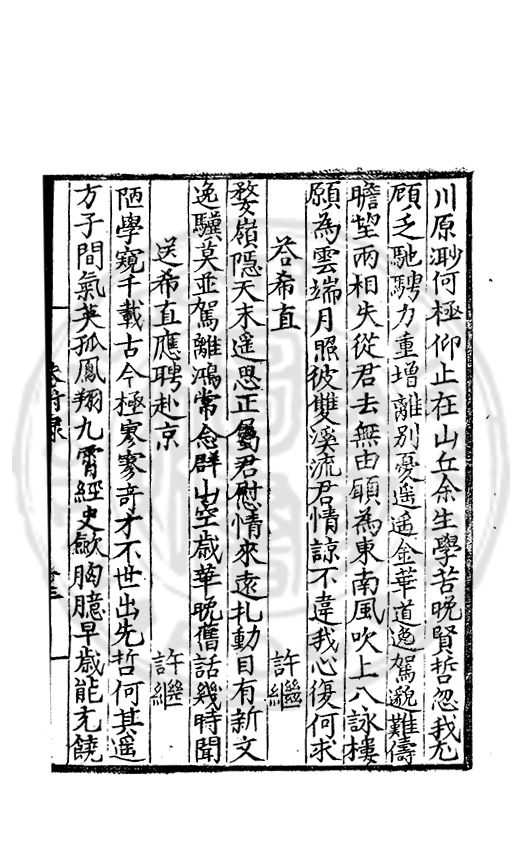 川原渺何極仰止在山丘余生學苦晚賢哲忽我尤
顧乏馳騁力重增離別憂遥遥金華道逸駕邈難儔
瞻望兩相失從君去無由願為東南風吹上八詠樓
願為雲端月照彼雙溪流君情諒不違我心復何求
荅希直 許繼
婺嶺隱天末遥思正屬君慰情來遠札動目有新文
逸驥莫並駕離鴻常念群山空歳華晩舊話幾時聞
送希直應聘赴京 許繼
陋學窺千載古今極寥寥竒才不世出先哲何其遥
方子間氣英孤鳳翔九霄經史歛胸臆早歳能充饒
附录